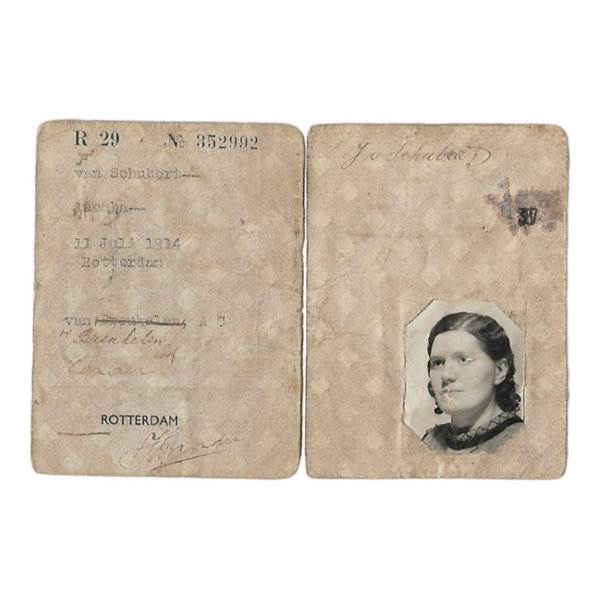 R 29 · № 352992
van Schubert—
Jacoba—
11 Juli 1914
Rotterdam
van Breukelen, A C
ROTTERDAM
J v Schubert
39